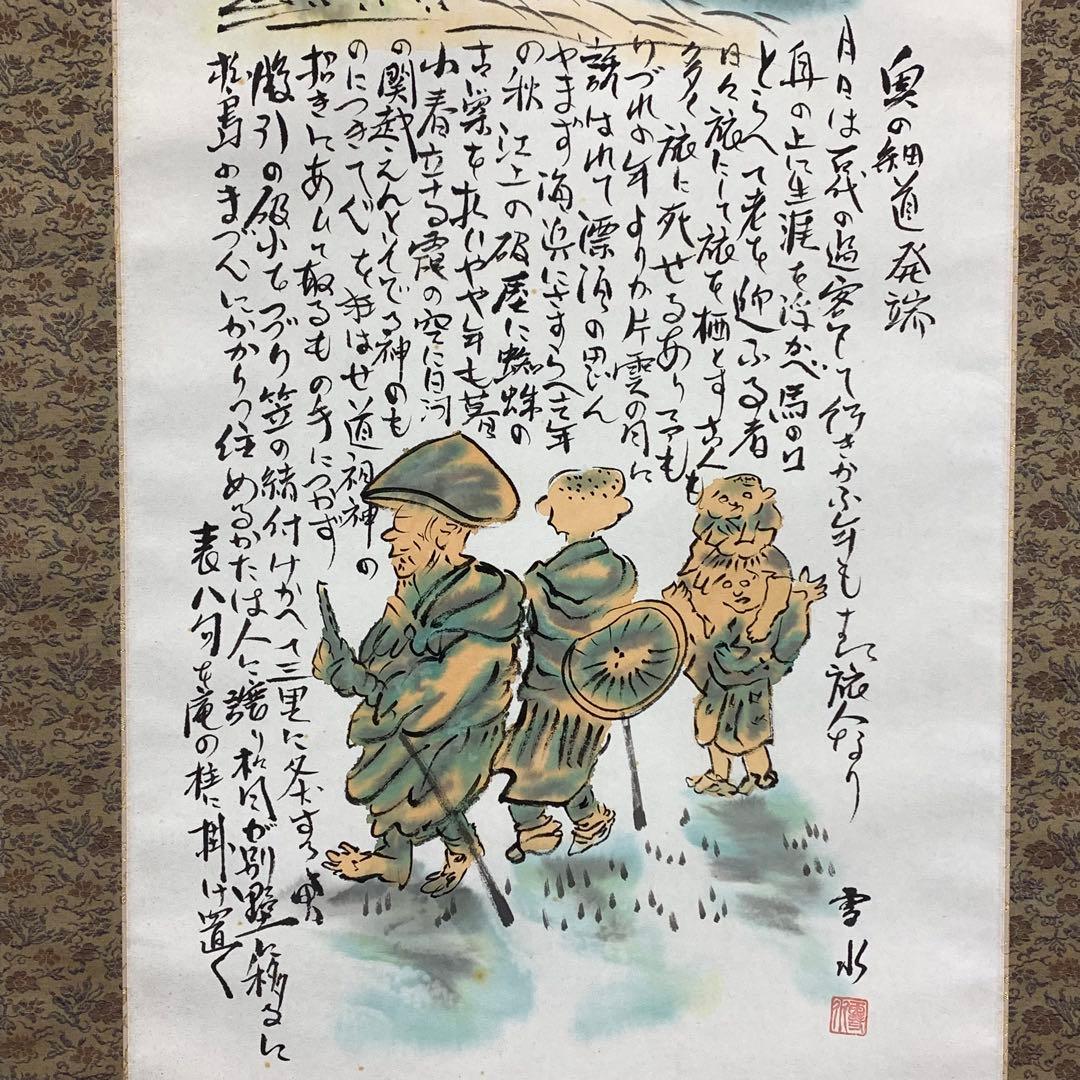 奥の細道 発端
月日は百代の過客にして行きかふ年もまた旅人なり
舟の上に生涯を浮かべ馬の口
とらへて老を迎ふる者
日々旅にして旅を栖とす古人も
多く旅に死せるあり予も
いづれの年よりか片雲の風に
誘はれて漂泊の思ひ
やまず海浜にさすらへ去年
の秋江上の破屋に蜘蛛の
古巣を払ひやや年も暮
春立てる霞の空に白河
の関越えんとそぞろ神のも
のにつきて心を狂はせ道祖神の
招きにあひて取るもの手につかず
股引の破れをつづり笠の緒付けかへて三里に灸すう
松島のまづ心にかかりて住めるかたは人に譲り杉風が別墅に移るに
表八句を庵の柱に掛け置く
雪水